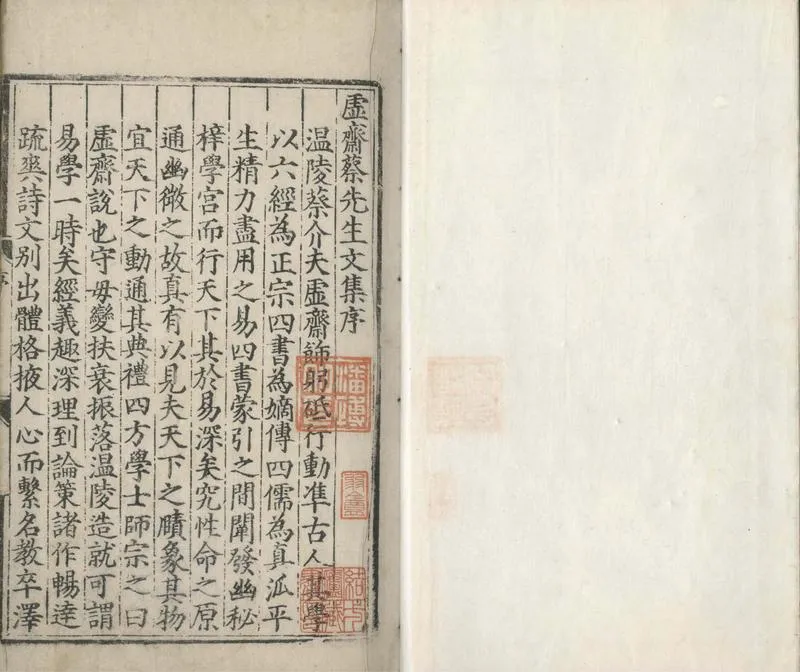 虛齋蔡先生文集序
溫陵蔡介夫虛齋飾躬砥行動準古人其學
以六經為正宗四書為嫡傳四儒為真派平
生精力盡用之易四書蒙引之間闡發幽秘
梓學宮而行天下其於易深矣究性命之原
通幽微之故真有以見夫天下之賾象其物
宜天下之動通其典禮四方學士師宗之曰
虛齋說也守毋變扶衰振落溫陵造就可謂
易學一時矣經義趣深理到論策諸作暢達
疏爽詩文別出體格掖人心而繫名教卒澤
序